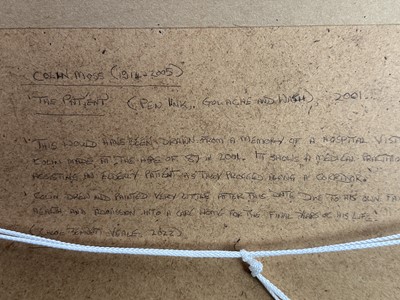 COLIN MOSS (1914-2005)
"THE PATIENT" (PEN INK, GOUACHE AND WASH), 2001.
"THIS WOULD HAVE BEEN DRAWN FROM A MEMORY OF A HOSPITAL VISIT
COLIN MADE AT THE AGE OF 87 IN 2001. IT SHOWS A MEDICAL
ASSISTING AN ELDERLY PATIENT AS THEY PROCEED ALONG A CORRIDOR.
COLIN DREW AND PAINTED VERY LITTLE AFTER THIS DATE DUE TO HIS OWN
HEALTH AND ADMISSION INTO A CARE HOME FOR THE FINAL YEARS OF HIS LIFE."
2022)